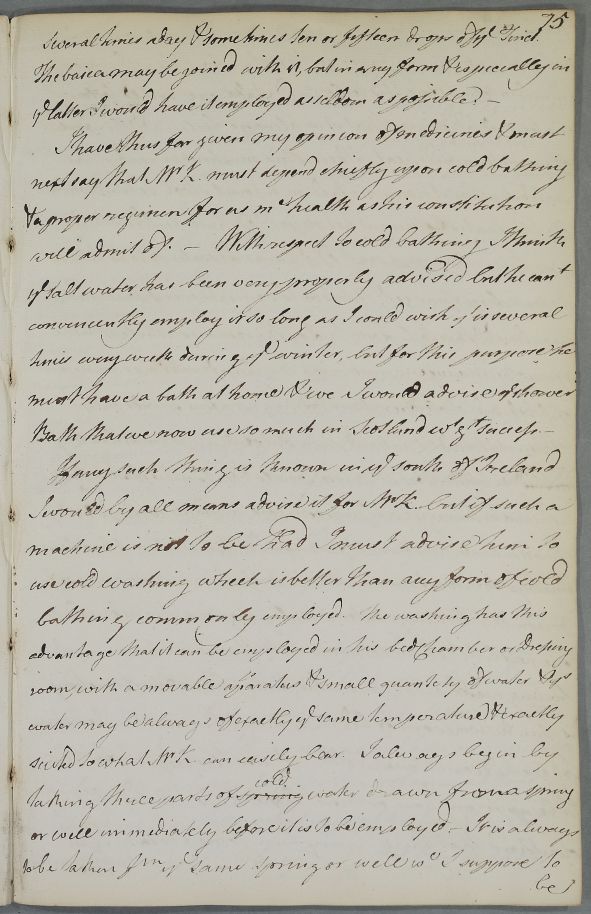 75
several times a day & sometimes ten or fifteen drops of ye Tinct.
The basica may be joined with it, but in any form & especially in
ye latter I would have it employed as seldom as possible. –
I have thus far given my opinion of medicines & must
next say that Mr K. must depend chiefly upon cold bathing
& a proper regimen for as mch health as his constitution
will admit of. – With respect to cold bathing I think
ye salt water has been very properly advised but he cant
conveniently employ it so long as I could wish yt is several
times every week during ye winter, but for this purpose he
must have a bath at home & we I would advise ye shower
Bath that we now use so much in Scotland wt gt success –
If any such thing is known in ye south of Ireland
I would by all means advise it for Mr K. but if such a
machine is not to be had I must advise him to
use cold washing which is better than any form of cold
bathing commonly employed. The washing has this
advantage that it can be employed in his bedchamber or Dressing
room, with a movable apparatus & small quantity of water & ys
water may be always of exactly ye same temperature & exactly
suited to what Mr K can easily bear. I always begin by
taking three parts of spring cold water drawn from a spring
or well immediately before it is to be employed – It is always
to be taken fm ye same spring or well wc I suppose to
be